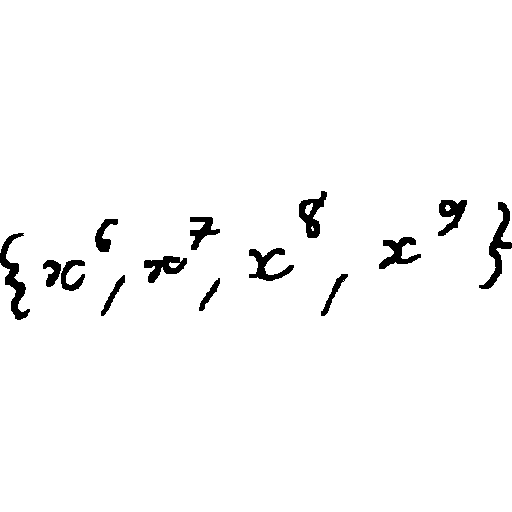 {x⁶, x⁷, x⁸, x⁹}